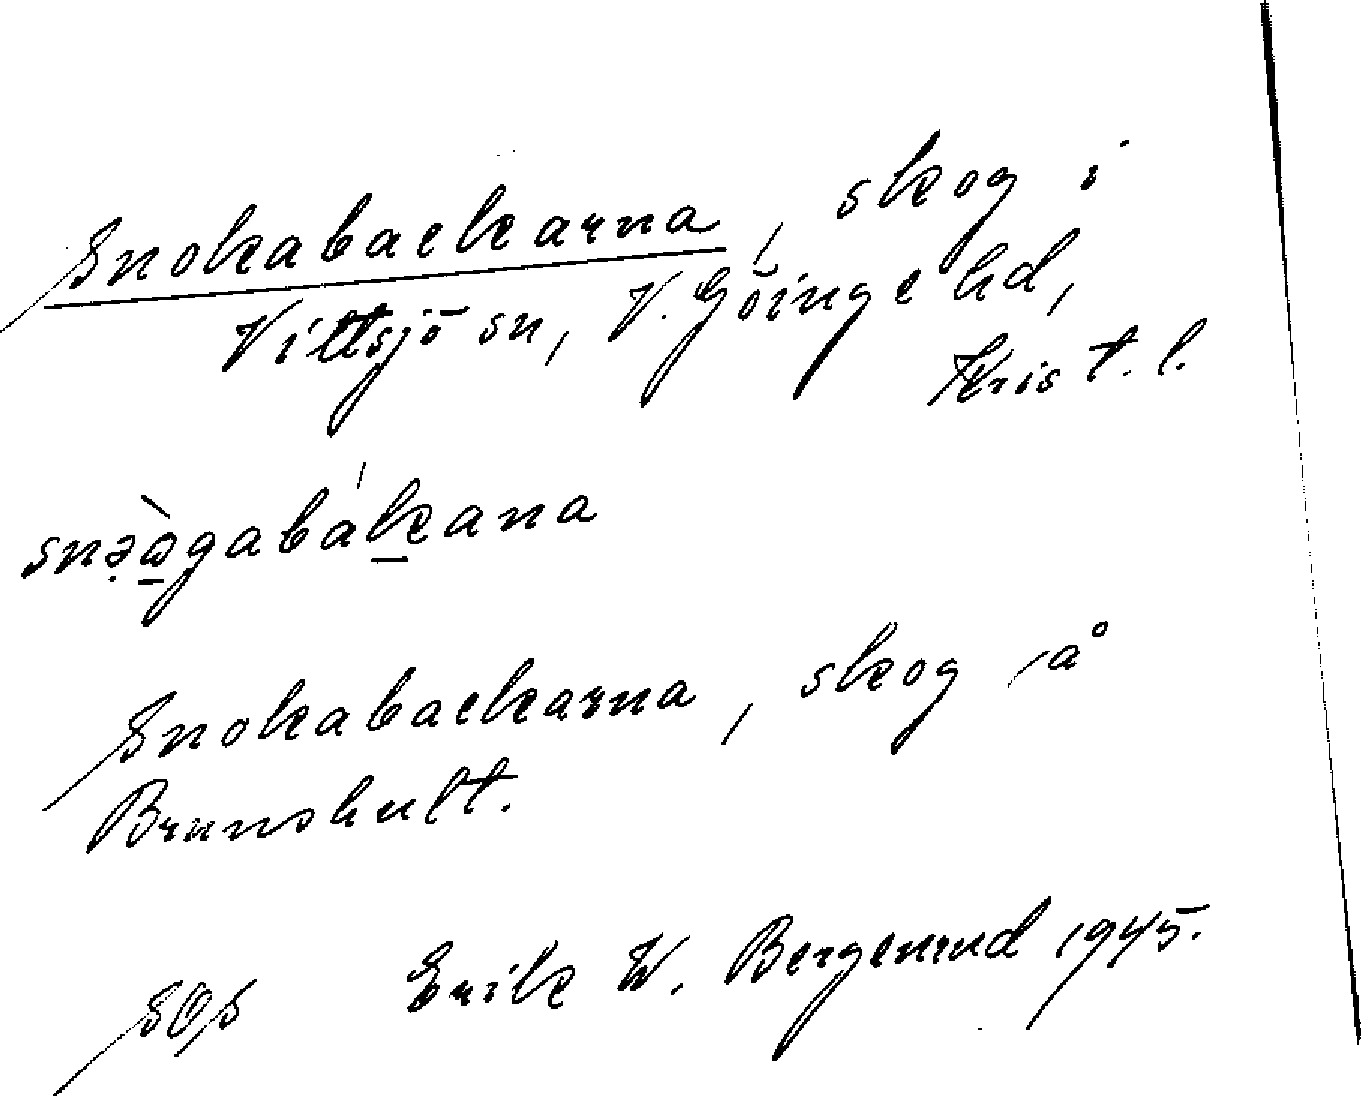 Snokabackarna, skog i
Vittsjö sn, V. Göinge hd,
Krist. l.
snə̣ògabák̠ana
Snokabackarna, skog å
Brunshult.
SOS Erik W. Bergenrud 1945.